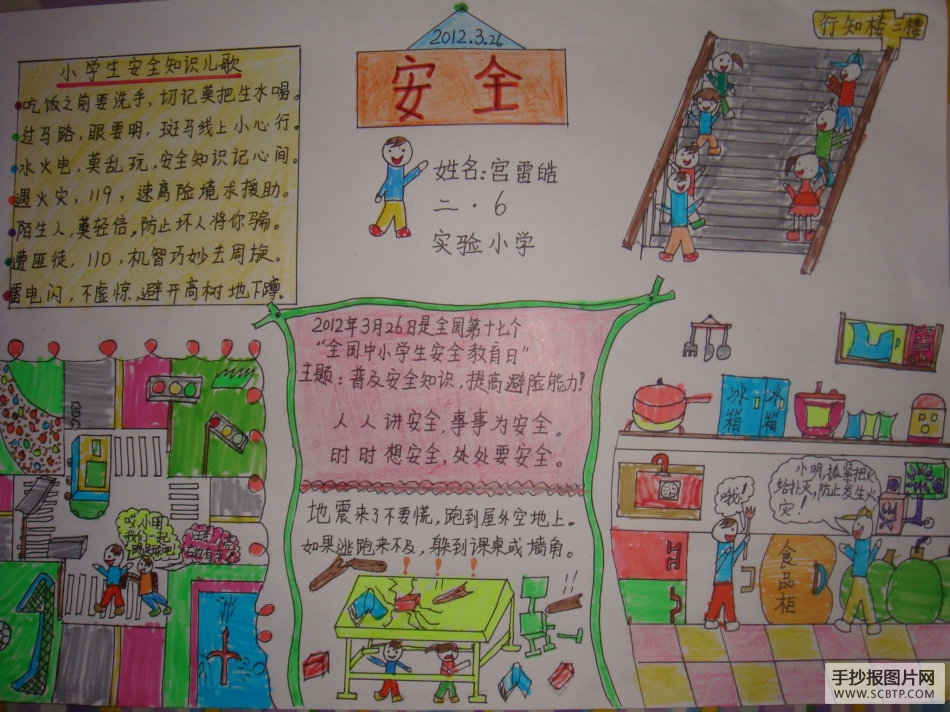 2012.3.26
安全
姓名：宫雷皓
二·6
实验小学
小学生安全知识儿歌
吃饭之前要洗手，切记莫把生水喝。
过马路，眼要明，斑马线上小心行。
水火电，莫乱玩，安全知识记心间。
遇火灾，119，速离险境求援助。
陌生人，莫轻信，防止坏人将你骗。
遭匪徒，110，机智巧妙去周旋。
雷电闪，不虚惊，避开高树地下蹲。
行知楼二楼
2012年3月26日是全国第十七个
“全国中小学生安全教育日”
主题：普及安全知识，提高避险能力！
人人讲安全，事事为安全。
时时想安全，处处要安全。
地震来了不要慌，跑到屋外空地上。
如果逃跑来不及，躲到课桌或墙角。
哎，小明
我们一起
冰箱
冰箱
哦！
小明，抓紧把火
给扑灭，防止发生火
灾！
食品柜
手抄报图片网
WWW.SCBTP.COM